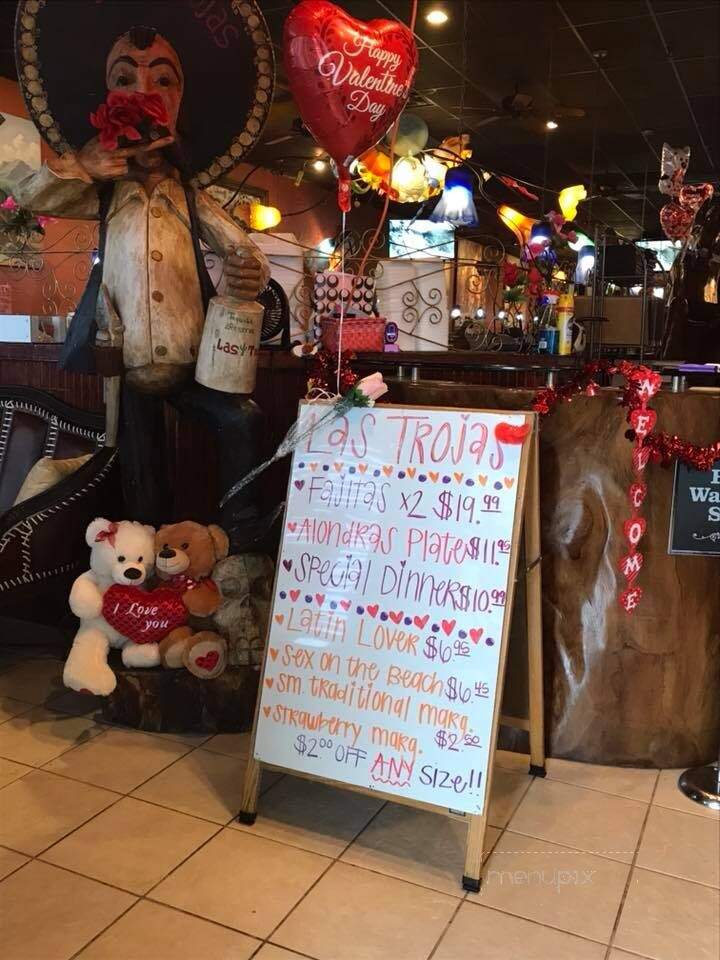 Trojas
Happy
Valentine's
Day
Tequila
Reserva
Las Tr
LAS TROJAS
FAJITAS x2 $19.99
Alondras Plate $11.95
SPECIAL DINNER $10.99
LATIN LOVER $6.95
Sex on the Beach $6.45
sm. traditional marg. $2.50
Strawberry marg.
$2.00 OFF ANY SIZE!!
I Love
you
WELCOME
Wa
S
menupix